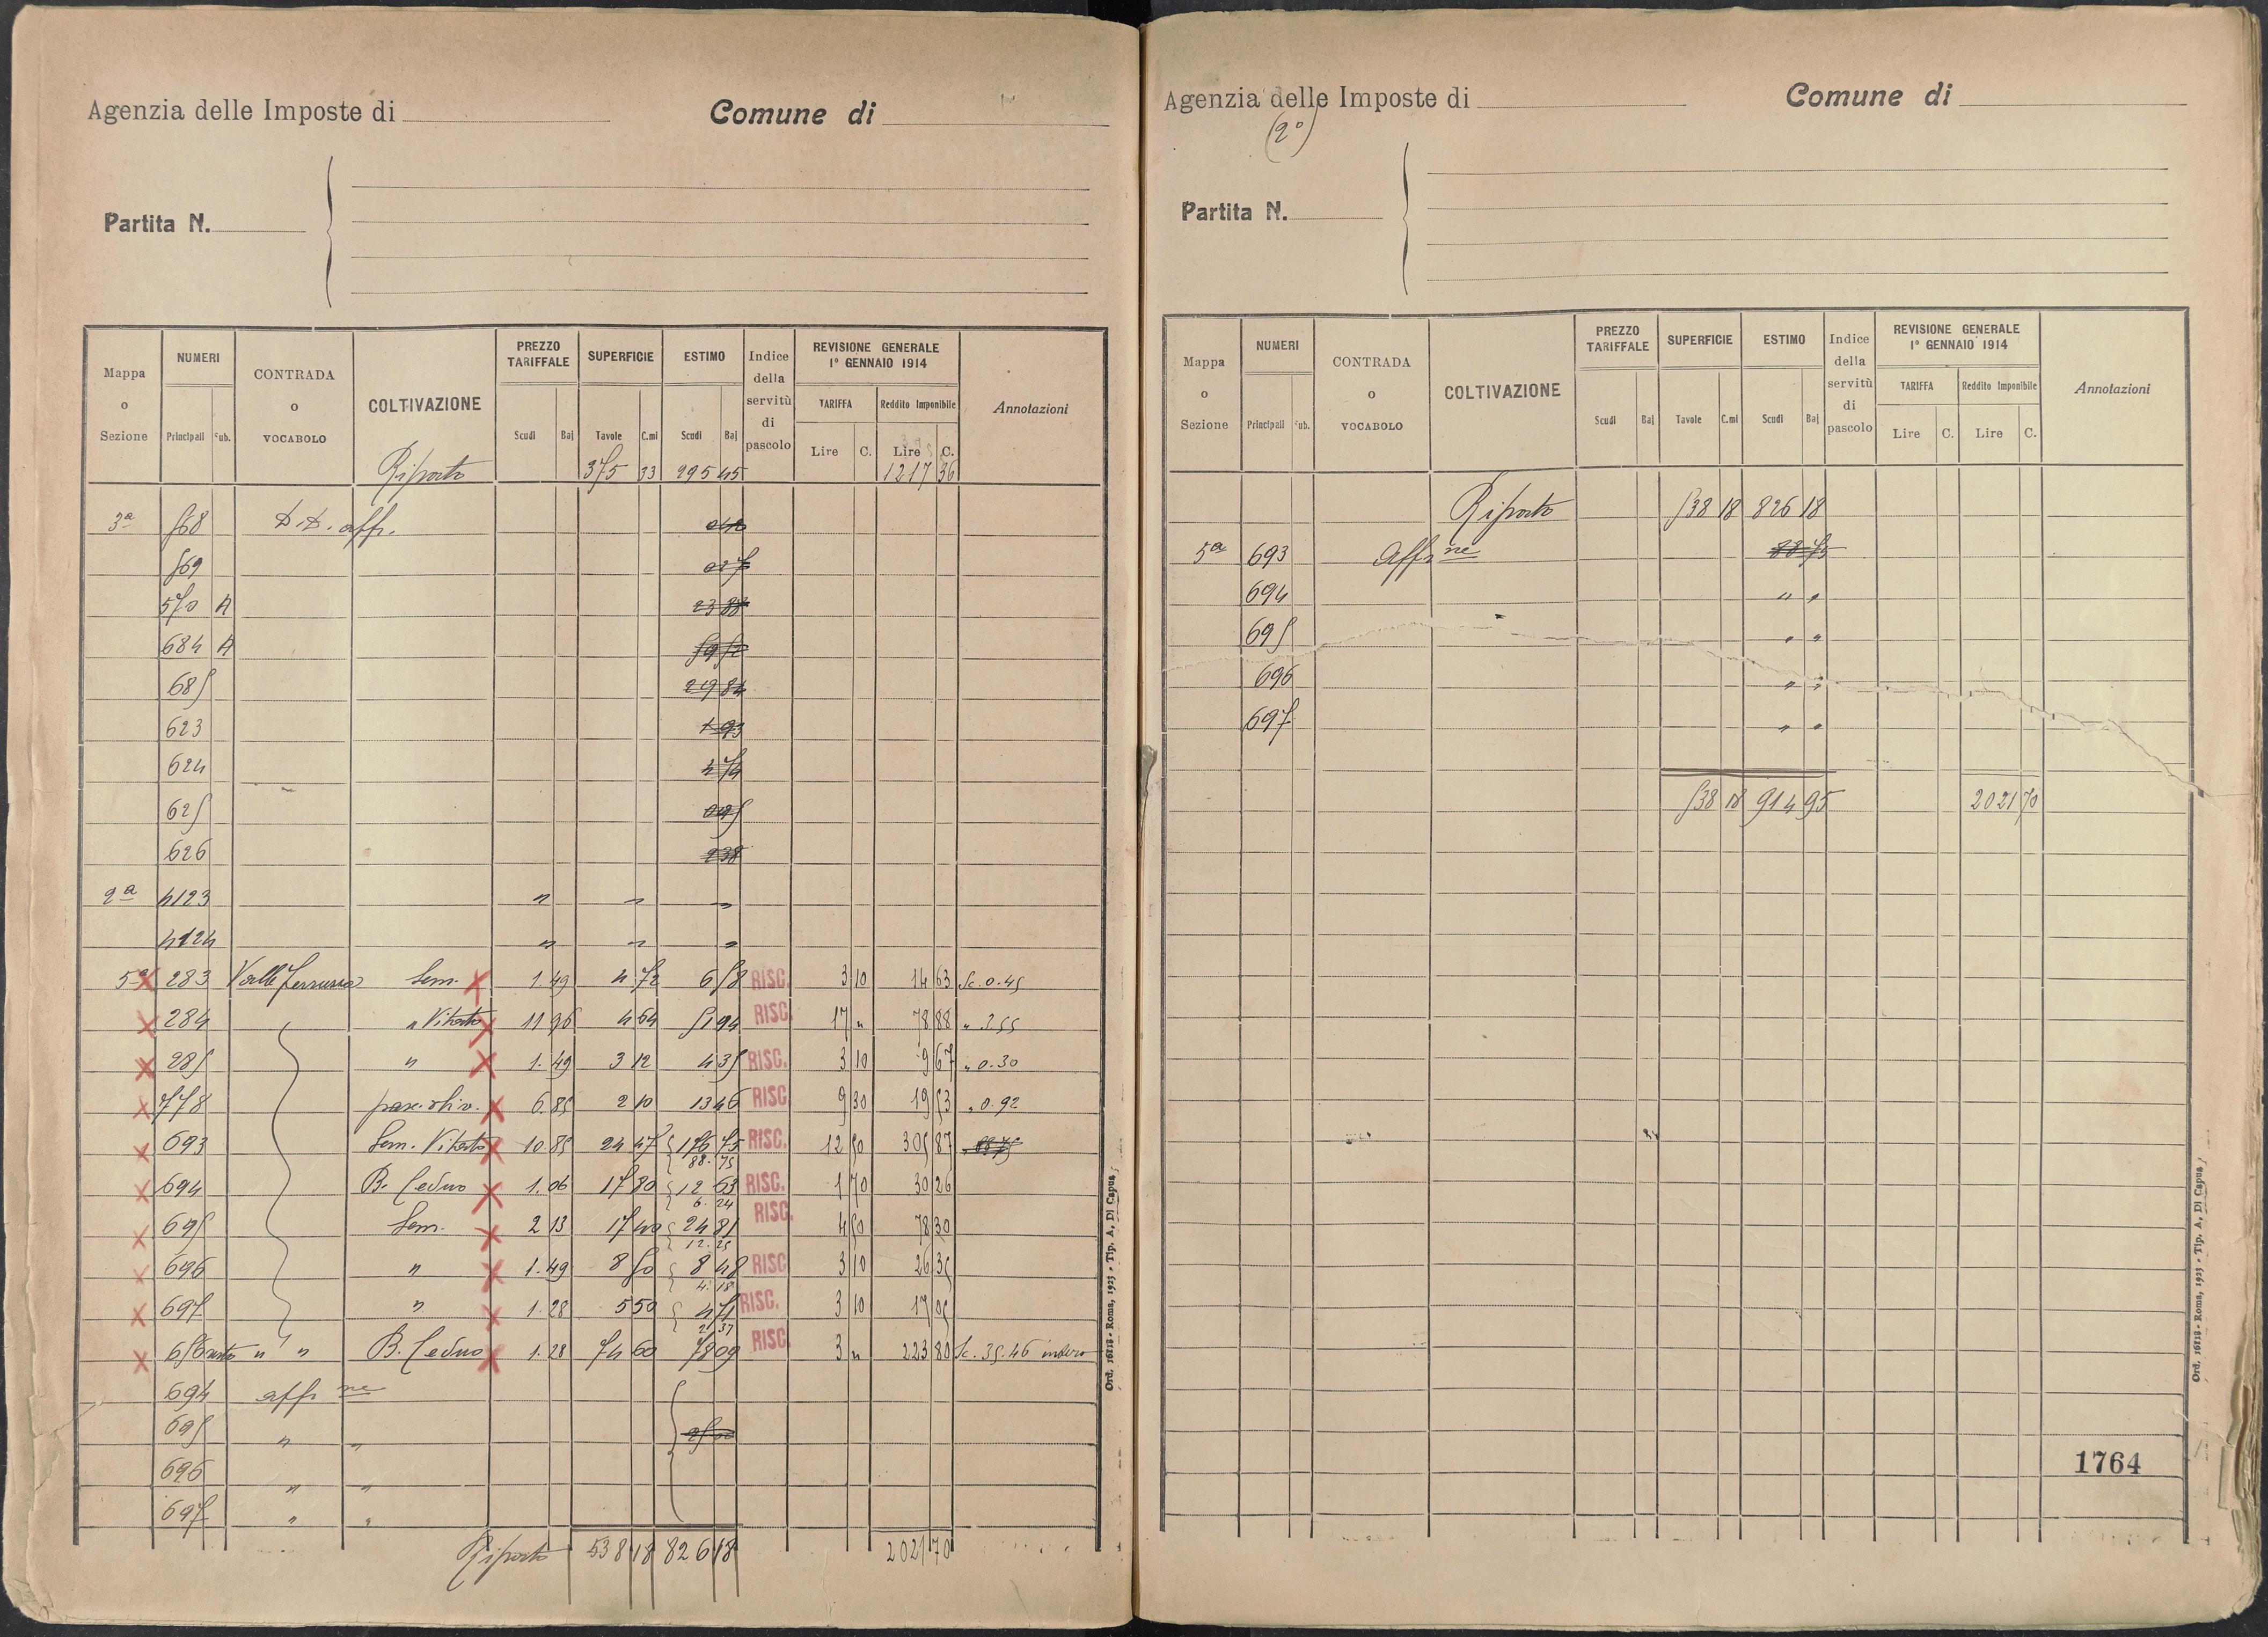 Agenzia delle Imposte di
Comune di
Partita N.
Mappa o Sezione
NUMERI
Principali
Sub.
CONTRADA o VOCABOLO
COLTIVAZIONE
PREZZO TARIFFALE
Scudi
Baj
SUPERFICIE
Tavole
C.mi
ESTIMO
Scudi
Baj
Indice della servitù di pascolo
REVISIONE GENERALE 1° GENNAIO 1914
TARIFFA
Lire
C.
Reddito Imponibile
Lire
C.
Annotazioni
Riporto 375 33 295 45 1217 36
3a 568 D.D. affr.
569
570 A 23 88
684 A 59 52
685 29 84
623 1 93
624 4 74
625
626 2 38
2a 4123 " " "
4124 " " "
5a 283 Sem. 1.49 4 72 6 58 RISC. 3 10 14 63 Sc. 0.45
284 " Vitato 11 96 4 64 51 94 RISC. 17 " 78 88 " 3 55
285 " 1.49 3 12 4 35 RISC. 3 10 9 67 " 0.30
778 pasc. oliv. 6 85 2 10 13 46 RISC 9 30 19 53 " 0.92
693 Sem. Vitato 10 85 24 47 176 75 RISC. 12 50 305 87 88 75
88. 75
694 B. Ceduo 1.06 17 80 12 63 RISC. 1 70 30 26
6. 24
695 Sem. 2 13 17 40 24 81 RISC. 4 50 78 30
12. 25
696 " 1.49 8 50 8 48 RISC 3 10 26 35
4. 18
697 " 1.28 5 50 4 71 RISC. 3 10 17 05
2 37
" " B. Ceduo 1.28 74 60 78 09 RISC 3 " 223 80 Sc. 35.46 intero
694 affr ne
695 " "
696 " "
697 " "
Riporto 538 18 826 18 2021 70
Ord. 16818 - Roma, 1923 - Tip. A. Di Capua
Agenzia delle Imposte di
(2°)
Comune di
Partita N.
Mappa o Sezione
NUMERI
Principali
Sub.
CONTRADA o VOCABOLO
COLTIVAZIONE
PREZZO TARIFFALE
Scudi
Baj
SUPERFICIE
Tavole
C.mi
ESTIMO
Scudi
Baj
Indice della servitù di pascolo
REVISIONE GENERALE 1° GENNAIO 1914
TARIFFA
Lire
C.
Reddito Imponibile
Lire
C.
Annotazioni
Riporto 538 18 826 18
5a 693 Affr ne 88 75
694 " "
695 " "
696 " "
697 " "
538 18 914 95 2021 70
1764
Ord. 16818 - Roma, 1923 - Tip. A. Di Capua